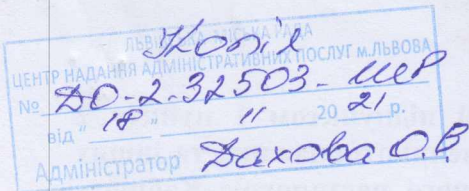 ЛЬВІВСЬКА МІСЬКА РАДА
Копія
ЦЕНТР НАДАННЯ АДМІНІСТРАТИВНИХ ПОСЛУГ м.ЛЬВОВА
№ ДО-2-32503-
від " 18 " 11 20 21 р.
Адміністратор Дахова О.В